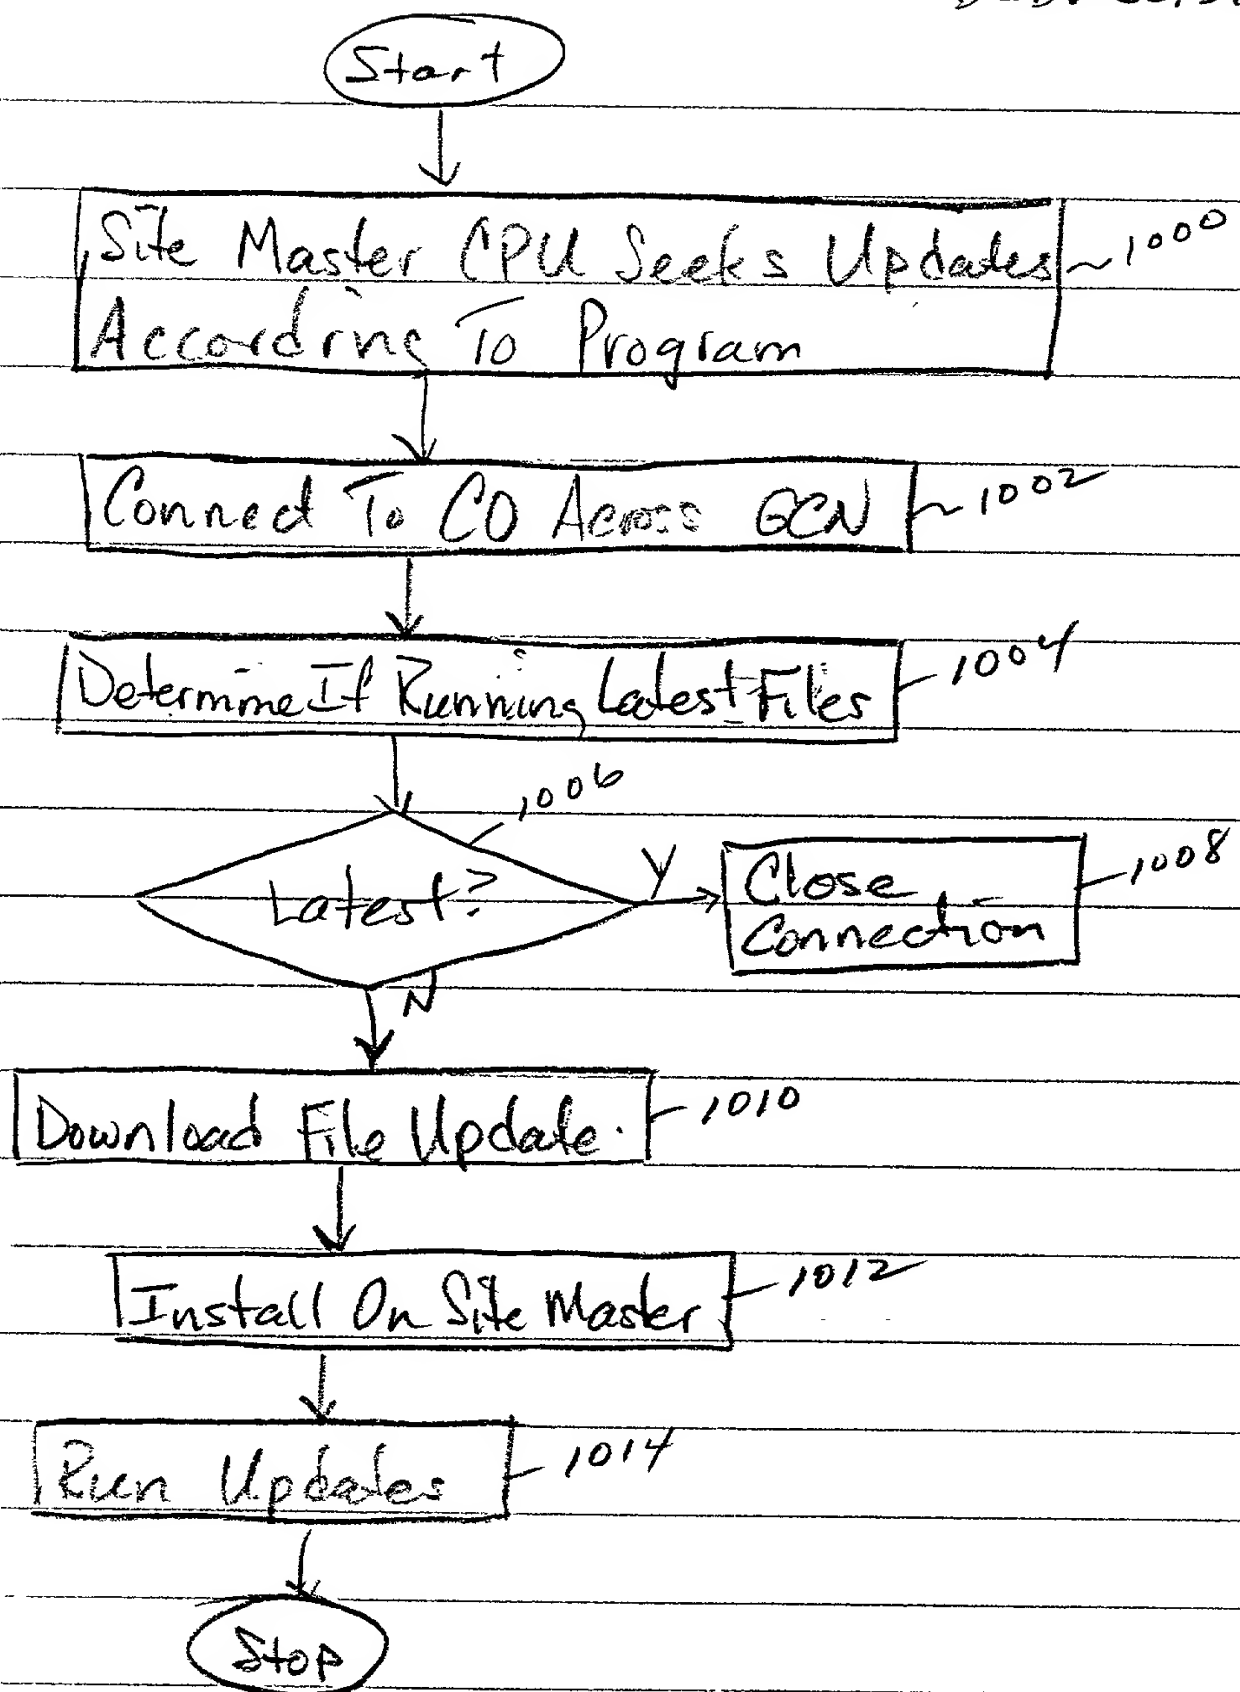 Start
Site Master CPU Seeks Updates
According To Program
1000
Connect To CO Across GCN
1002
Determine If Running Latest Files
1004
1006
Latest?
Y
Close
Connection
1008
N
Download File Update.
1010
Install On Site Master
1012
Run Updates
1014
Stop